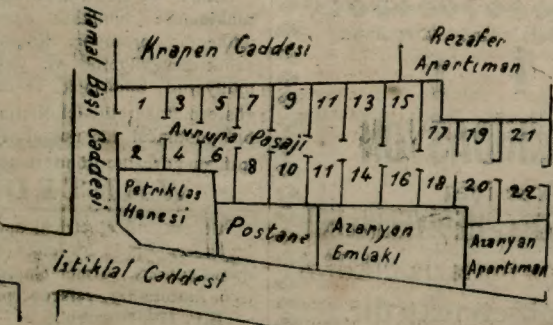 Hamal Başı Caddesi
Krapen Caddesi
Rezafer
Apartıman
1 3 5 7 9 11 13 15 17 19 21
Avrupa Pasajı
2 4 6 8 10 11 14 16 18 20 22
Patriklas
Hanesi
Postane
Azaryan
Emlakı
Azaryan
Apartıman
İstiklal Caddesi